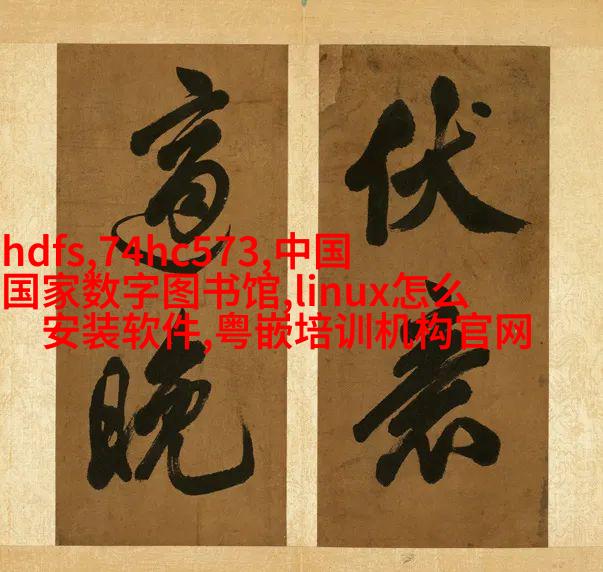 hdfs,74hc573,中国
国家数字图书馆,linux怎么
安装软件,粤嵌培训机构官网
伏
晚